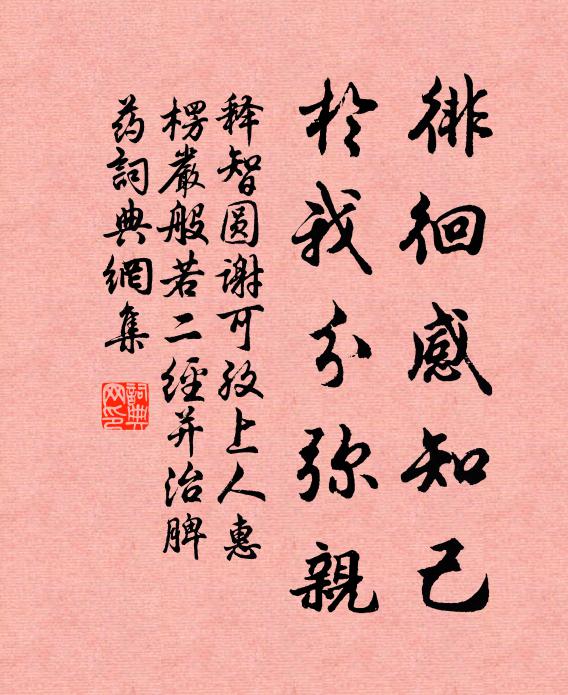 徘徊感知己
於我分弥親
释智圆谢可孜上人惠
楞嚴般若二經并治脾
药詞典網集
詞典網印